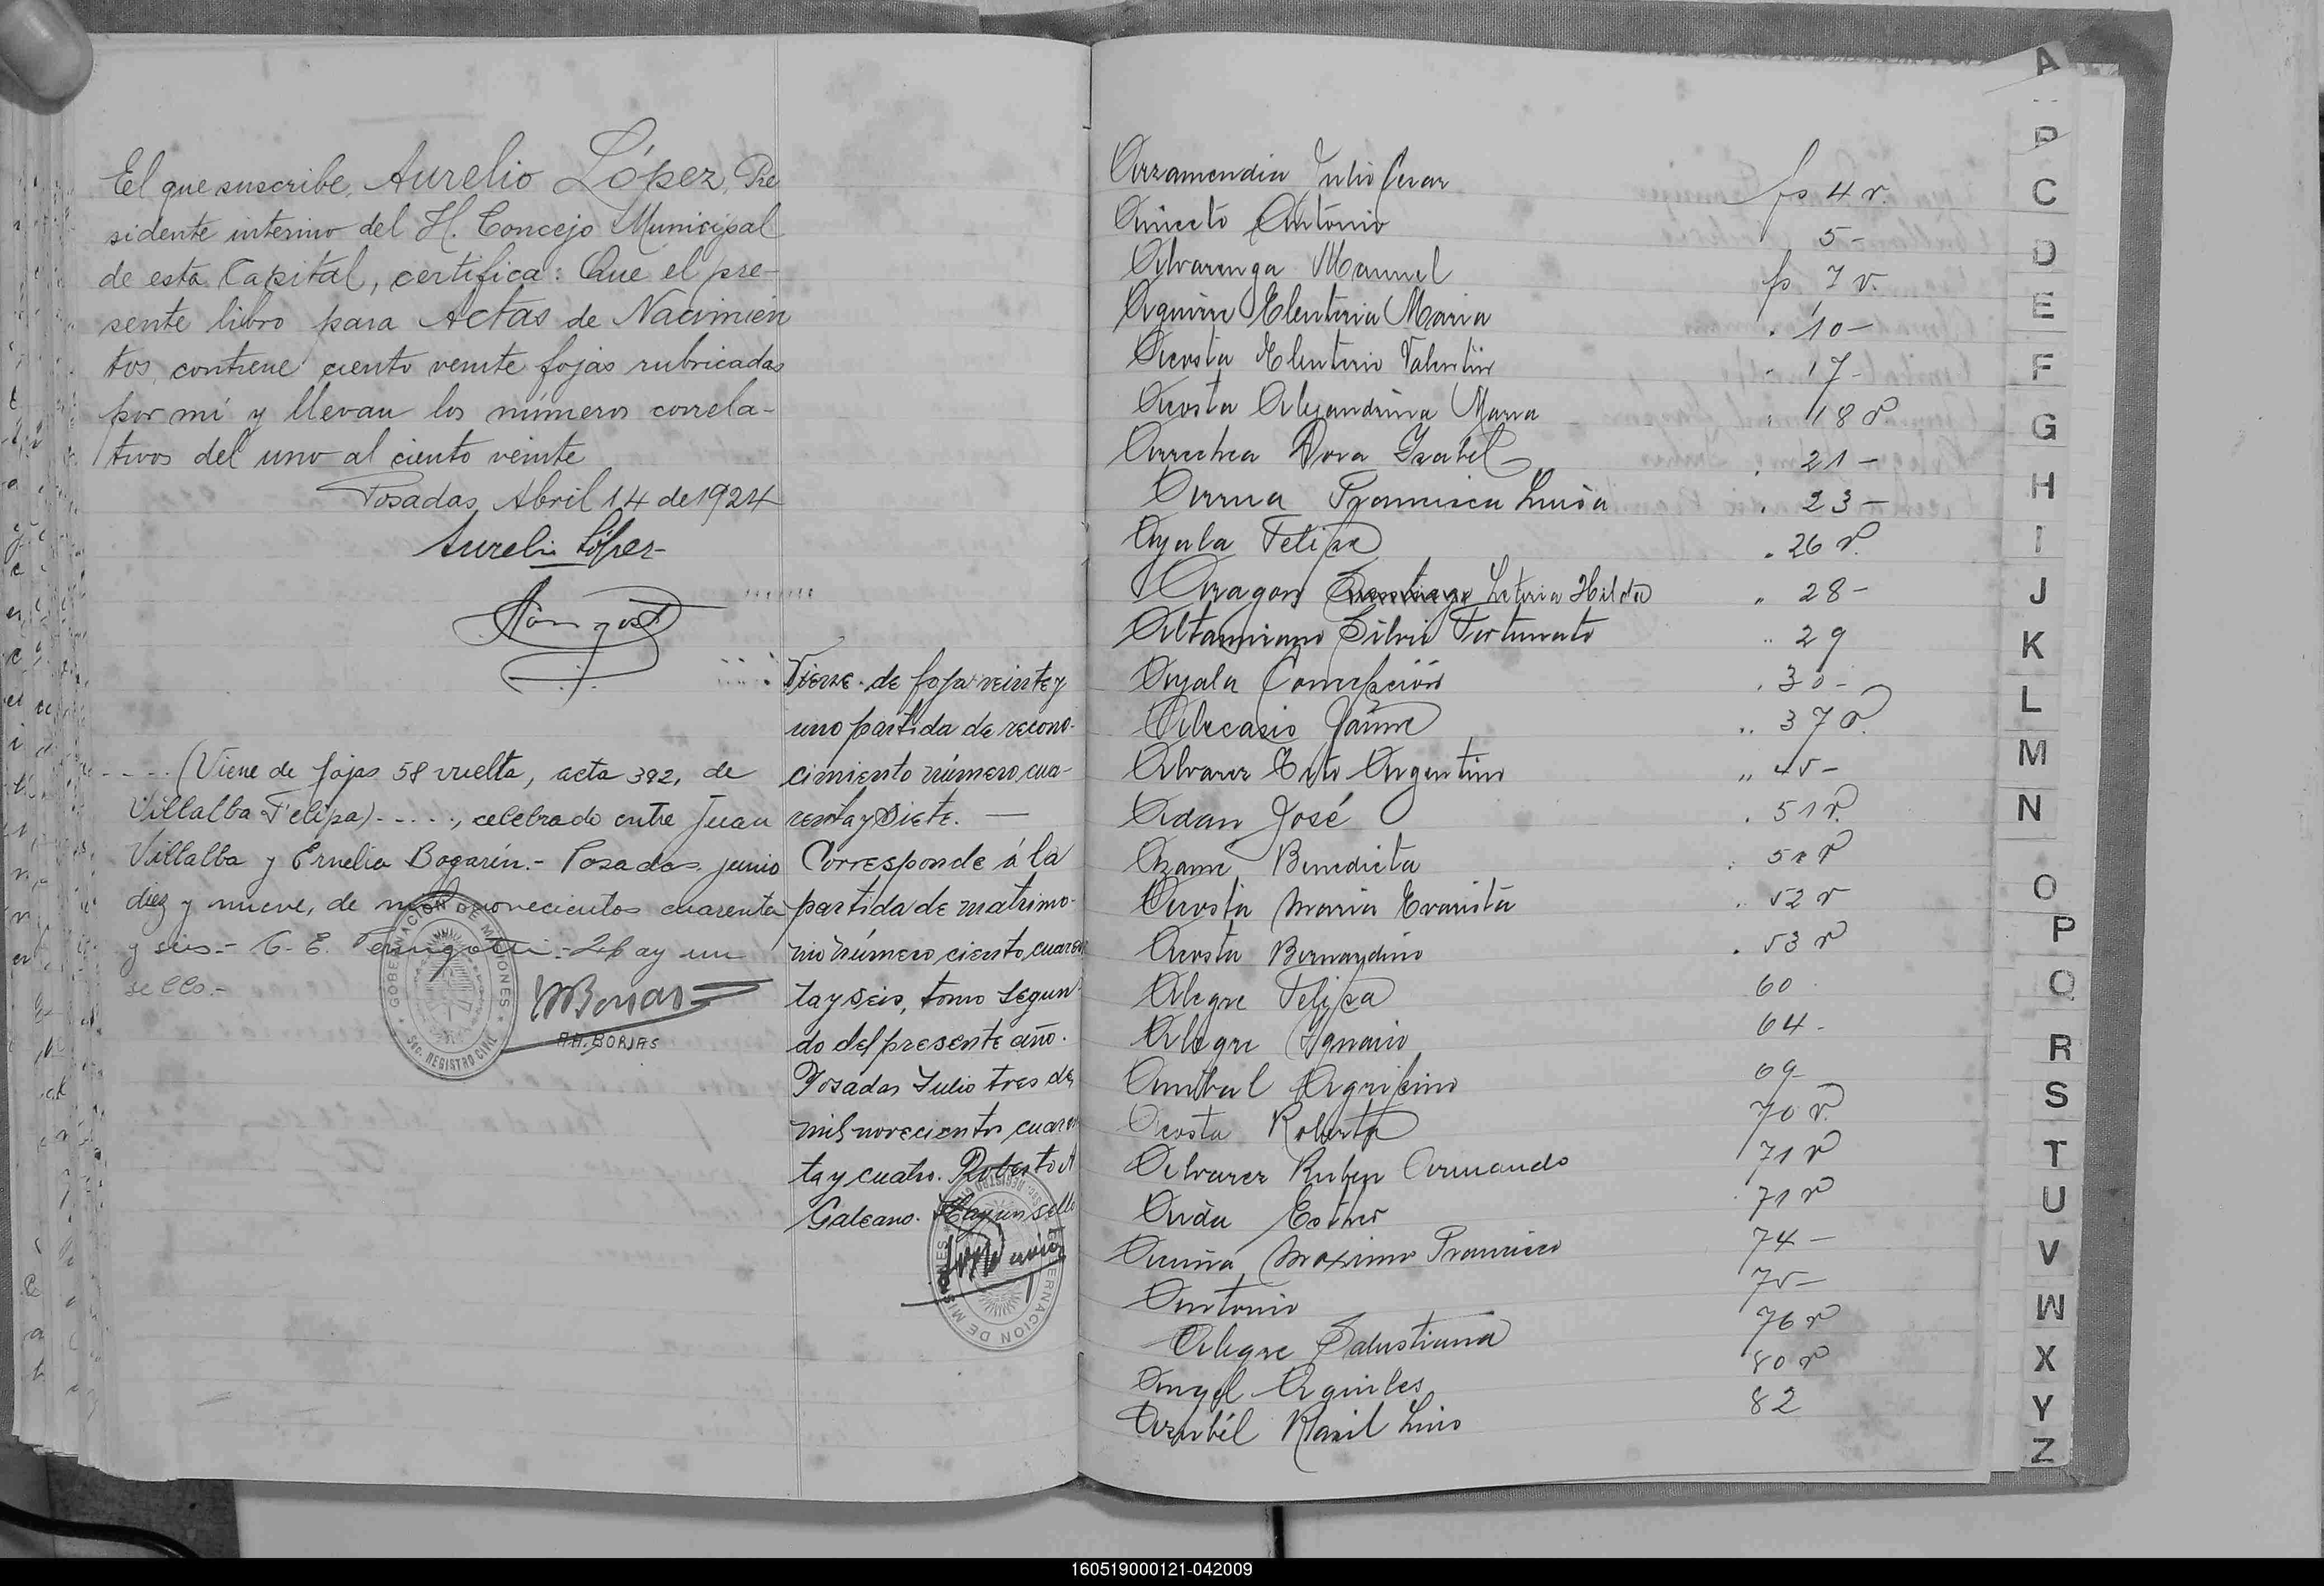 El que suscribe, Aurelio López, Pre
sidente interino del H. Concejo Municipal
de esta Capital, certifica: Que el pre-
sente libro para Actas de Nacimien
tos, contiene ciento veinte fojas rubricadas
por mí y llevan los números correla-
tivos del uno al ciento veinte
Posadas, Abril 14 de 1924
Aurelio López
(Viene de fojas 58 vuelta, acta 392, de
Villalba Felipa) - - - ., celebrado entre Juan
Villalba y Ernelia Bogarín.- Posadas, junio
diez y nueve, de mil novecientos cuarenta
y seis.- C. E. - Hay un
sello.-
GOBERNACION DE MISIONES
Sec. REGISTRO CIVIL
A.A. BORJAS
Viene de foja veinte y
uno partida de recono-
cimiento número cua-
renta y siete. —
Corresponde á la
partida de matrimo-
nio número ciento cuaren
ta y seis, tomo segun
do del presente año.
Posadas Julio tres de
mil novecientos cuaren
ta y cuatro. Roberto A
Galeano. Hay un sello
GOBERNACION DE MISIONES
Sec. REGISTRO CIVIL
Arzamendia Julio Cesar fs 4 v.
Aniceto Antonio 5 -
Alvarenga Manuel fs 7 v.
Aguirre Eleuteria Maria . 10 -
Acosta Eleuterio Valentin . 17 -
Acosta Alejandrina Maria . 18 v
Arrechea Dora Ysabel . 21 -
Arrua Francisca Luisa . 23 -
Ayala Felipa . 26 v.
Aragon Leteria Hilda " 28 -
Altamirano Silvio Fortunato .. 29
Ayala Concepción . 30 -
Albecasis Jaime .. 37 v.
Alvarez Tito Argentino " 45 -
Adan José . 51 v.
Azame Benedicta . 51 v
Acosta Maria Evarista . 52 v
Acosta Bernardino . 53 v
Alegre Felipa 60
Alegre Ignacio 64 -
Anibal Agripino 69
Acosta Roberta 70 v.
Alvarez Ruben Armando 71 v
Esther 71 v
Acuña Maximo Francisco 74 -
Antonio 75 -
Alegre Salustiana 76 v
Angel Arquiles 80 v
Raul Lino 82
A
B
C
D
E
F
G
H
I
J
K
L
M
N
O
P
Q
R
S
T
U
V
W
X
Y
Z
160519000121-042009